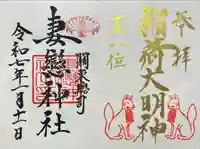 奉拝
稲荷大明神
正一位
関東総司
妻戀神社
令和七年一月十一日